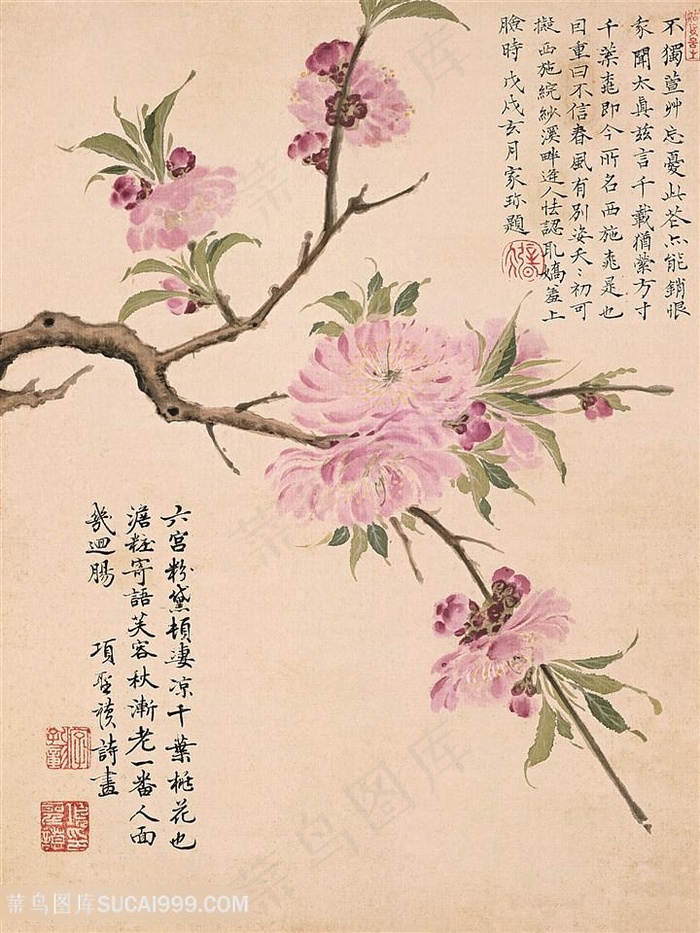 不獨萱艸忘憂此花亦能銷恨
家聞太真茲言千載猶縈方寸
千葉桃即今所名西施桃是也
因重曰不信春風有別姿夭〻初可
擬西施浣紗溪畔逢人怯認取嬌羞上
臉時戊戌玄月家珎題
六宮粉黛頓淒涼千葉桃花也
澹粧寄語芙容秋漸老一番人面
幾迴腸
項聖謨詩畫
菜鸟图库SUCAI999.COM
菜鸟图库